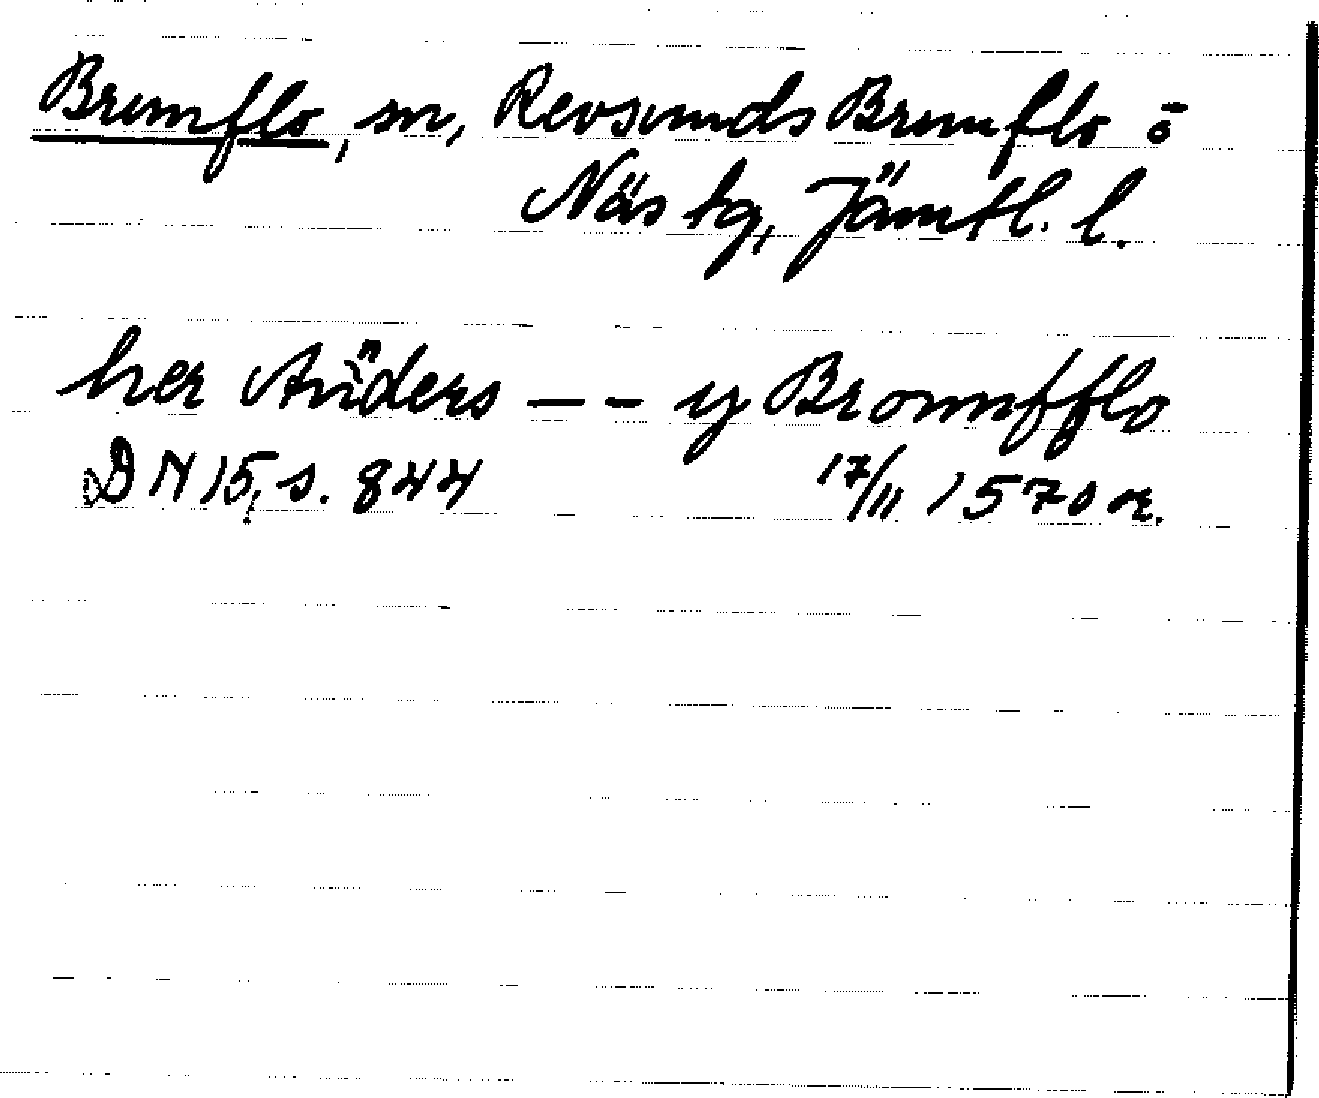 Brunflo, sn, Revsunds Brunflo o
Näs tg, Jämtl. l.
her Anders - - y Bronnfflo
DN 15, s. 844 17/11 1570 or.